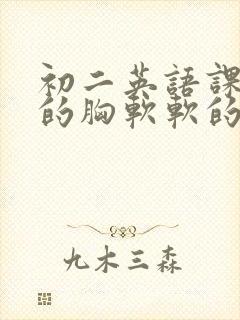 初二英語課
的胸軟軟的
九木三森